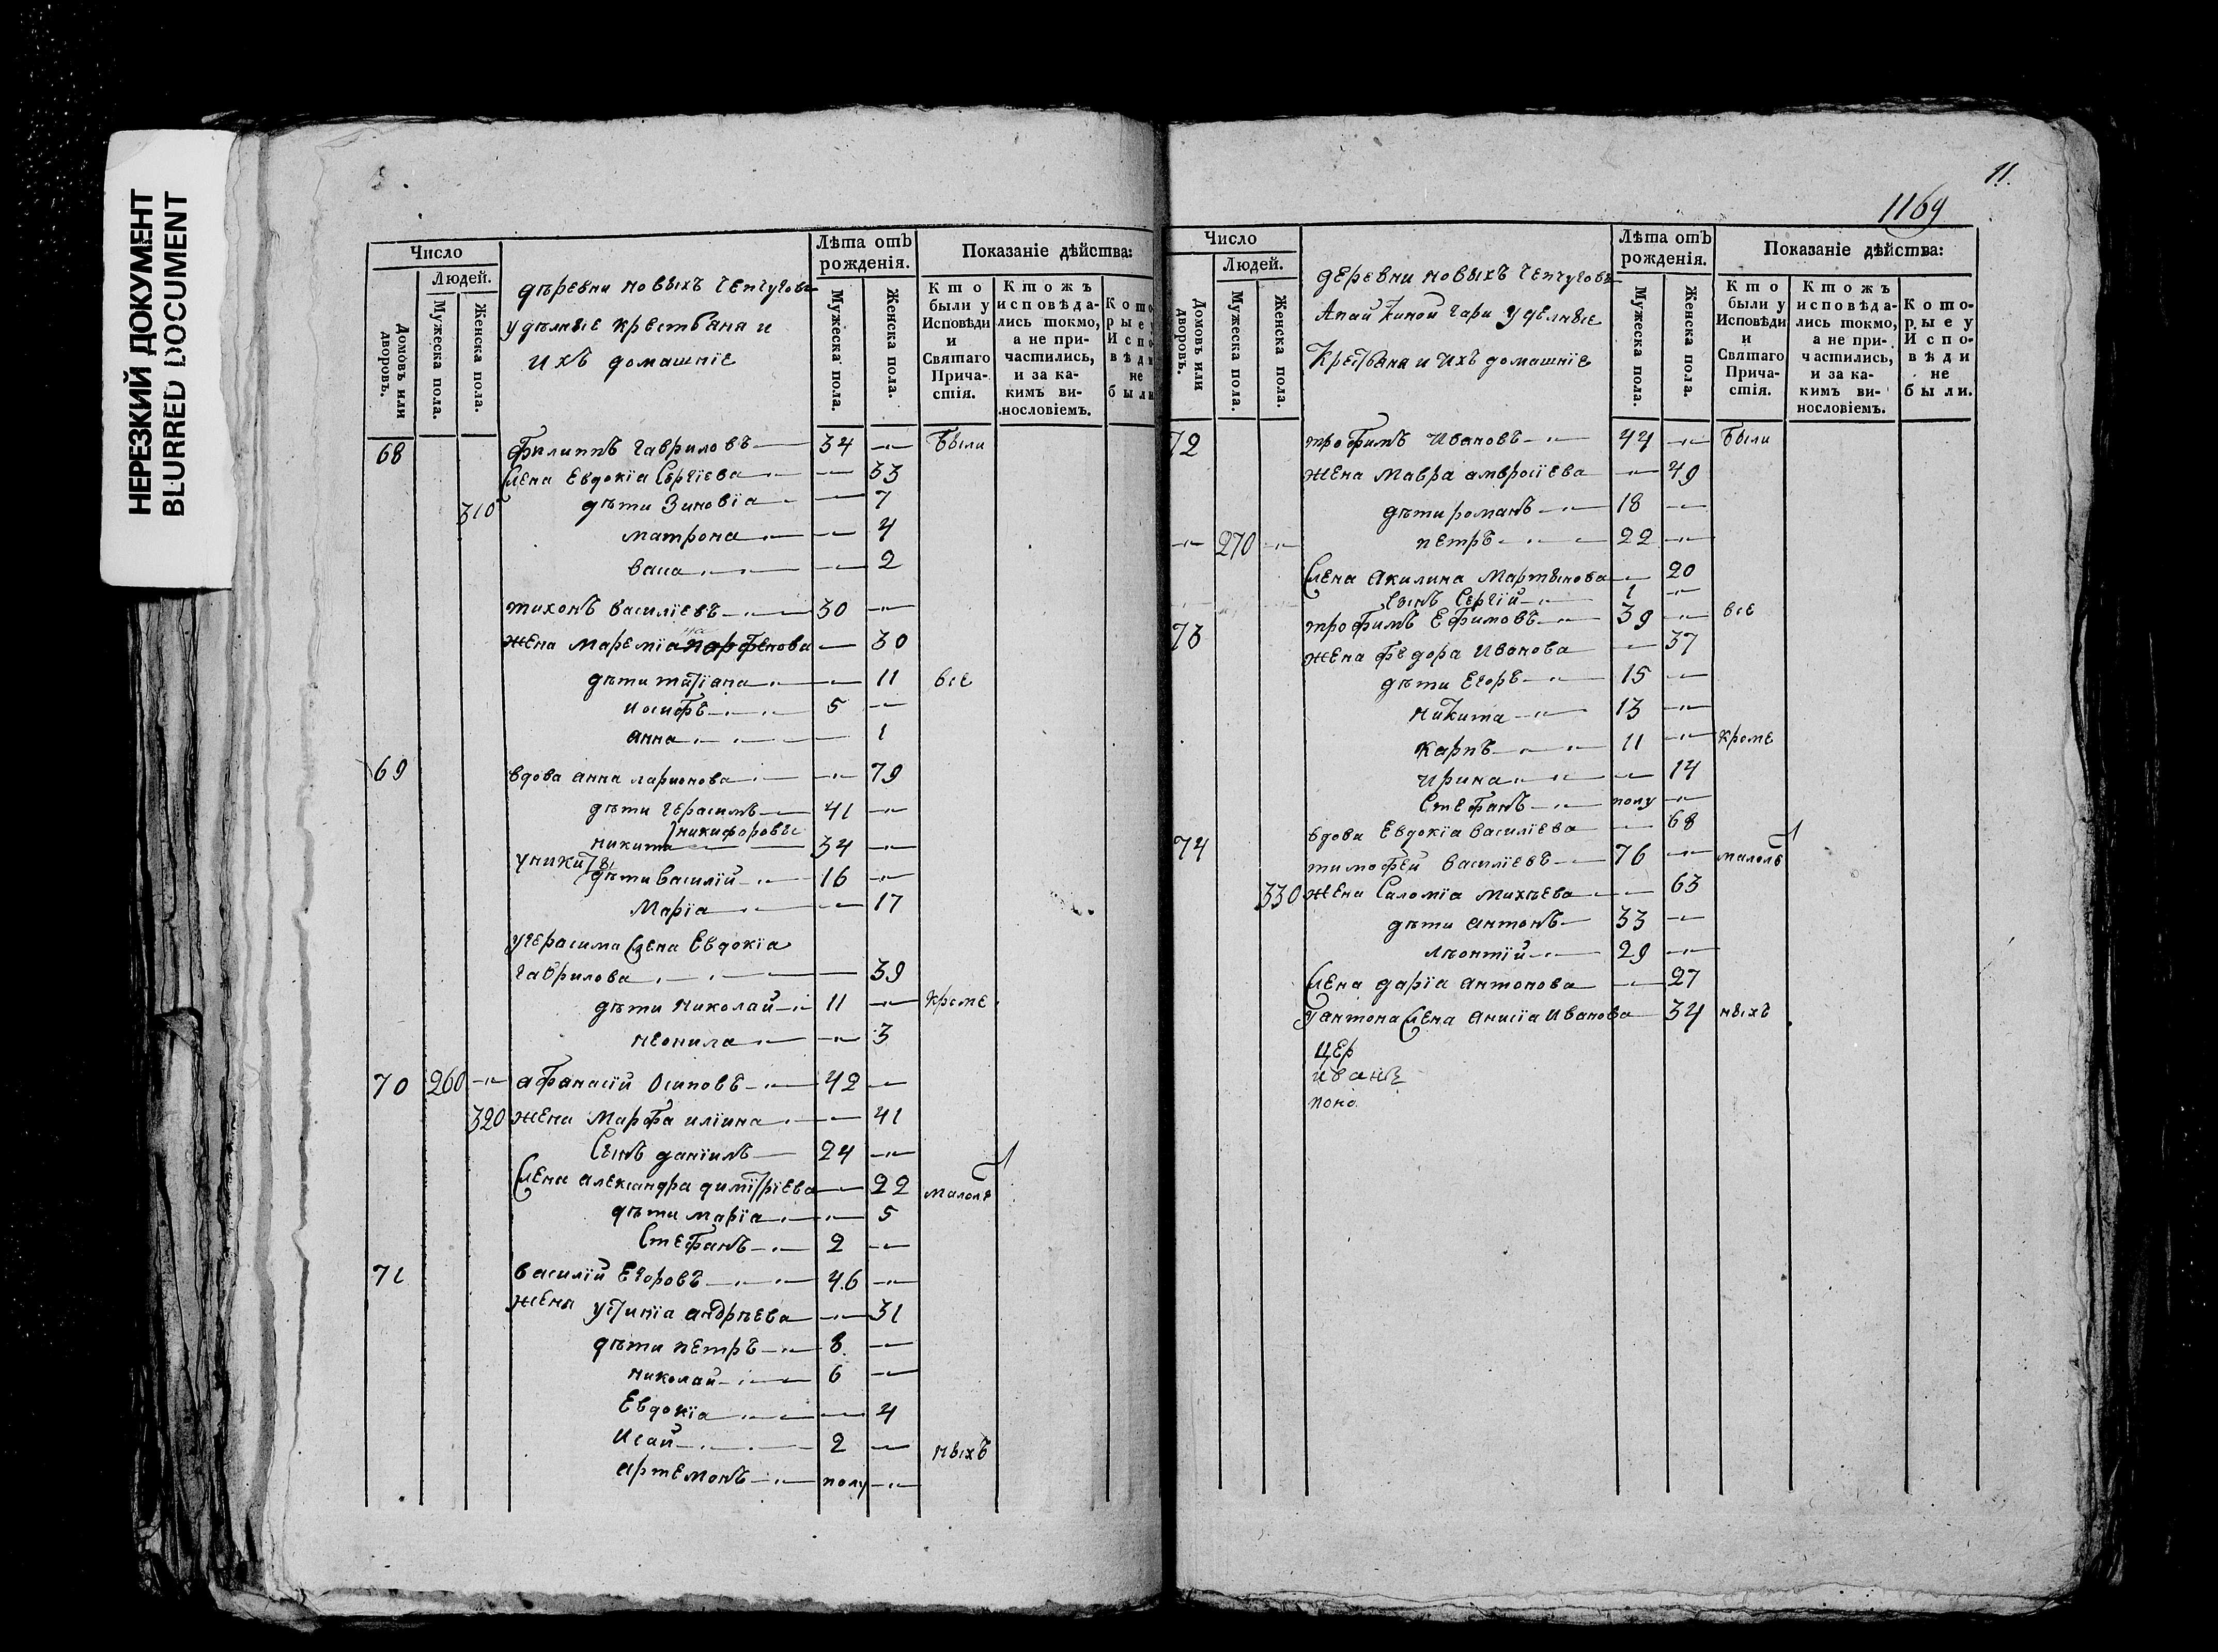 НЕРЕЗКИЙ ДОКУМЕНТ
BLURRED DOCUMENT
Число
Людей.
Домовъ или дворовъ.
Мужеска пола.
Женска пола.
деревни новыхъ
удѣлные крестьяна и
ихъ домашнїе
Лѣта отъ рожденія.
Мужеска пола.
Женска пола.
Показаніе дѣйства:
Кто были у Исповѣди и Святаго Причастія.
Ктожъ исповѣдались токмо, а не причастились, и за какимъ винословіемъ.
Которые у Исповѣди не были
68 Филиппъ Гавриловъ 34 были
жена Евдокїа Сергїева 33
310 дѣти Зиновїа 7
матрона 4
васа 2
тихонъ василїевъ 30
жена Маремїа парфенова 30
дѣти татїана 11 всѣ
иосифъ 5
анна 1
69 вдова анна ларионова 79
дѣти герасимъ 41
никифоровы
никита 34
у никиты
дѣти василїй 16
Марїа 17
у герасима жена Евдокїа
гаврилова 39
дѣти николай 11 кроме
неонила 3
70 260 афанасїй Осиповъ 42
320 жена Марфа илїина 41
Сынъ данїилъ 24
жена александра димитрїева 22 малолѣт
дѣти марїа 5
Стефанъ 2
71 василїй Егоровъ 46
жена устинїа андрѣева 31
дѣти петръ 8
николай 6
Евдокїа 4
Исай 2 ныхъ
артемонъ полу
11.
1169
Число
Людей.
Домовъ или дворовъ.
Мужеска пола.
Женска пола.
деревни новыхъ
гари удѣлные
крестьяна и ихъ домашнїе
Лѣта отъ рожденія.
Мужеска пола.
Женска пола.
Показаніе дѣйства:
Кто были у Исповѣди и Святаго Причастія.
Ктожъ исповѣдались токмо, а не причастились, и за какимъ винословіемъ.
Которые у Исповѣди не были.
72 трофимъ Ивановъ 44 были
жена Мавра амвросїева 49
дѣти романъ 18
270 петръ 22
жена Акилина Мартынова 20
сынъ Сергїй 1
73 трофимъ Ефимовъ 39 всѣ
жена федора Иванова 37
дѣти Егоръ 15
никита 13
карпъ 11 кроме
Ирина 14
Стефанъ полу
вдова Евдокїа василїева 68
74 тимофей василїевъ 76 малолѣт
330 жена Саломїа михѣева 63
дѣти антонъ 33
лѣонтїй 29
жена дарїа антонова 27
у антона жена анисїа Иванова 34 ныхъ
цер
иванъ
поно